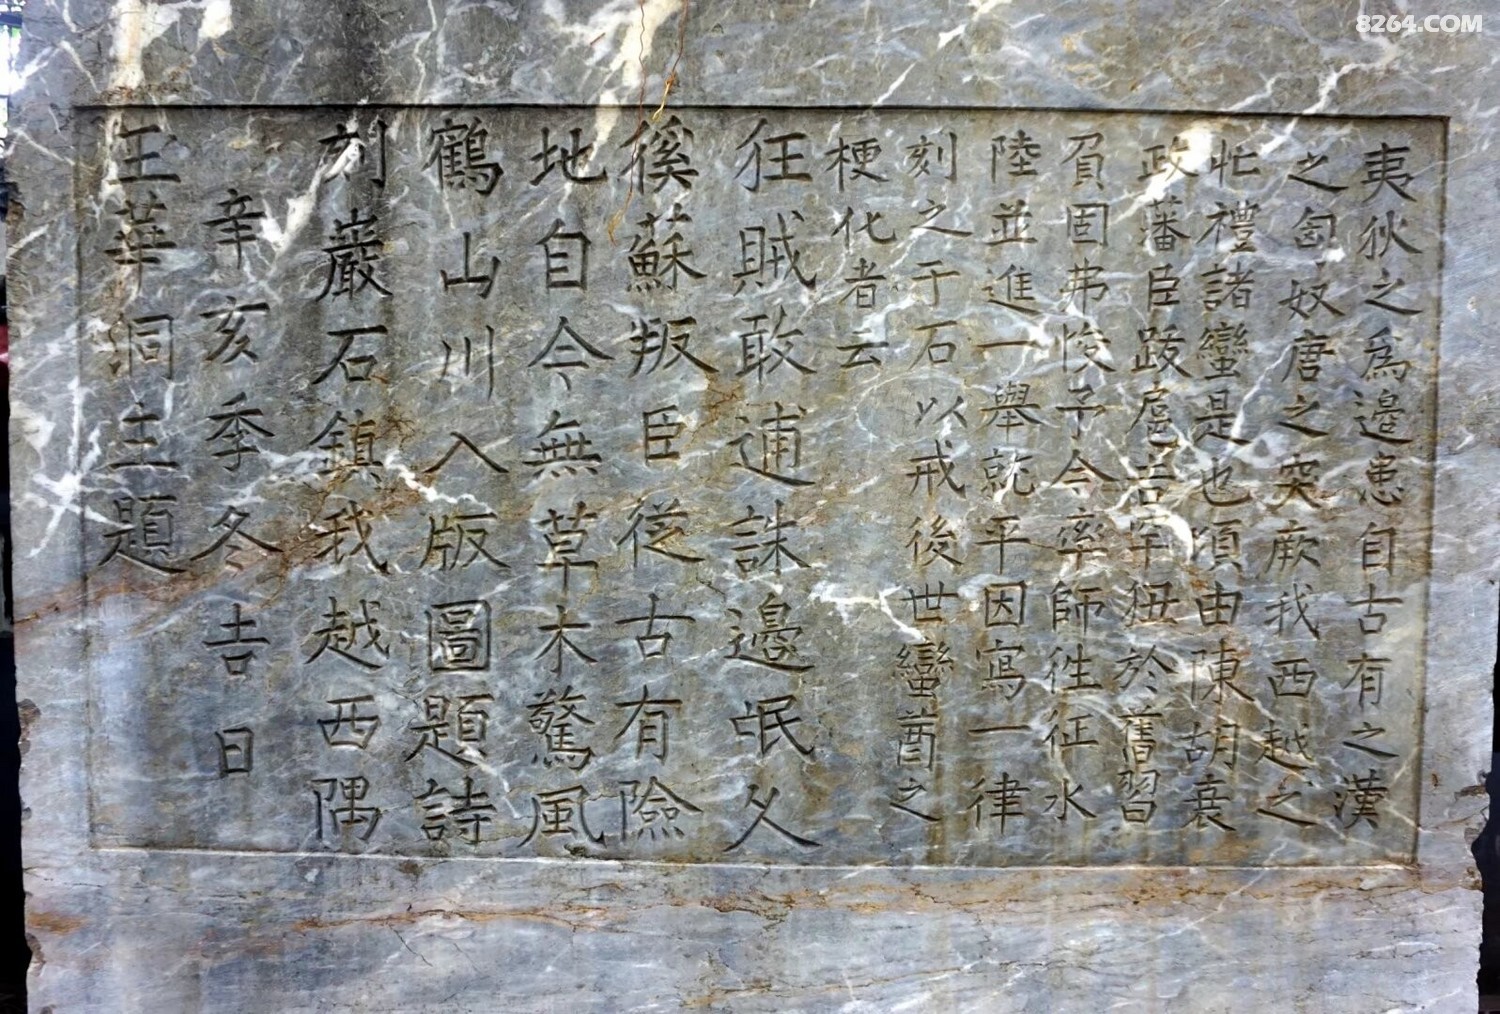 夷狄之爲邊患自古有之漢
之匈奴唐之突厥我西越之
忙禮諸蠻是也頃由陳胡衰
政藩臣跋扈吉罕狃於舊習
負固弗悛予今率師徃征水
陸並進一舉就平因寫一律
刻之于石以戒後世蠻酋之
梗化者云
狂賊敢逋誅邊氓久
徯蘇叛臣從古有險
地自今無草木驚風
鶴山川入版圖題詩
刻巖石鎮我越西隅
辛亥季冬吉日
玉華洞主題
8264.COM